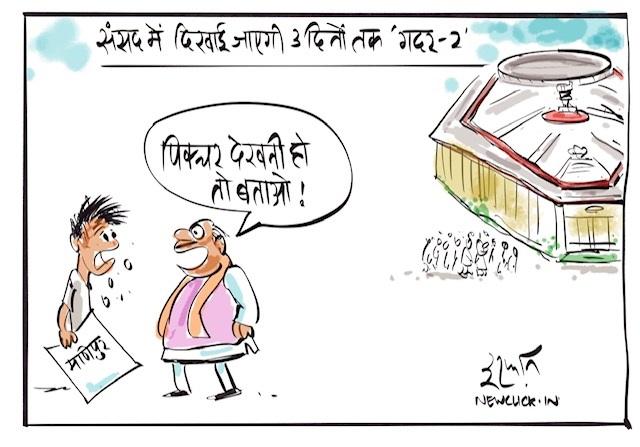 संसद में दिखाई जाएगी 3 दिनों तक 'गदर-2'
पिक्चर देखनी हो
तो बताओ!
मणिपुर
इरफ़ान
NEWSCLICK.IN